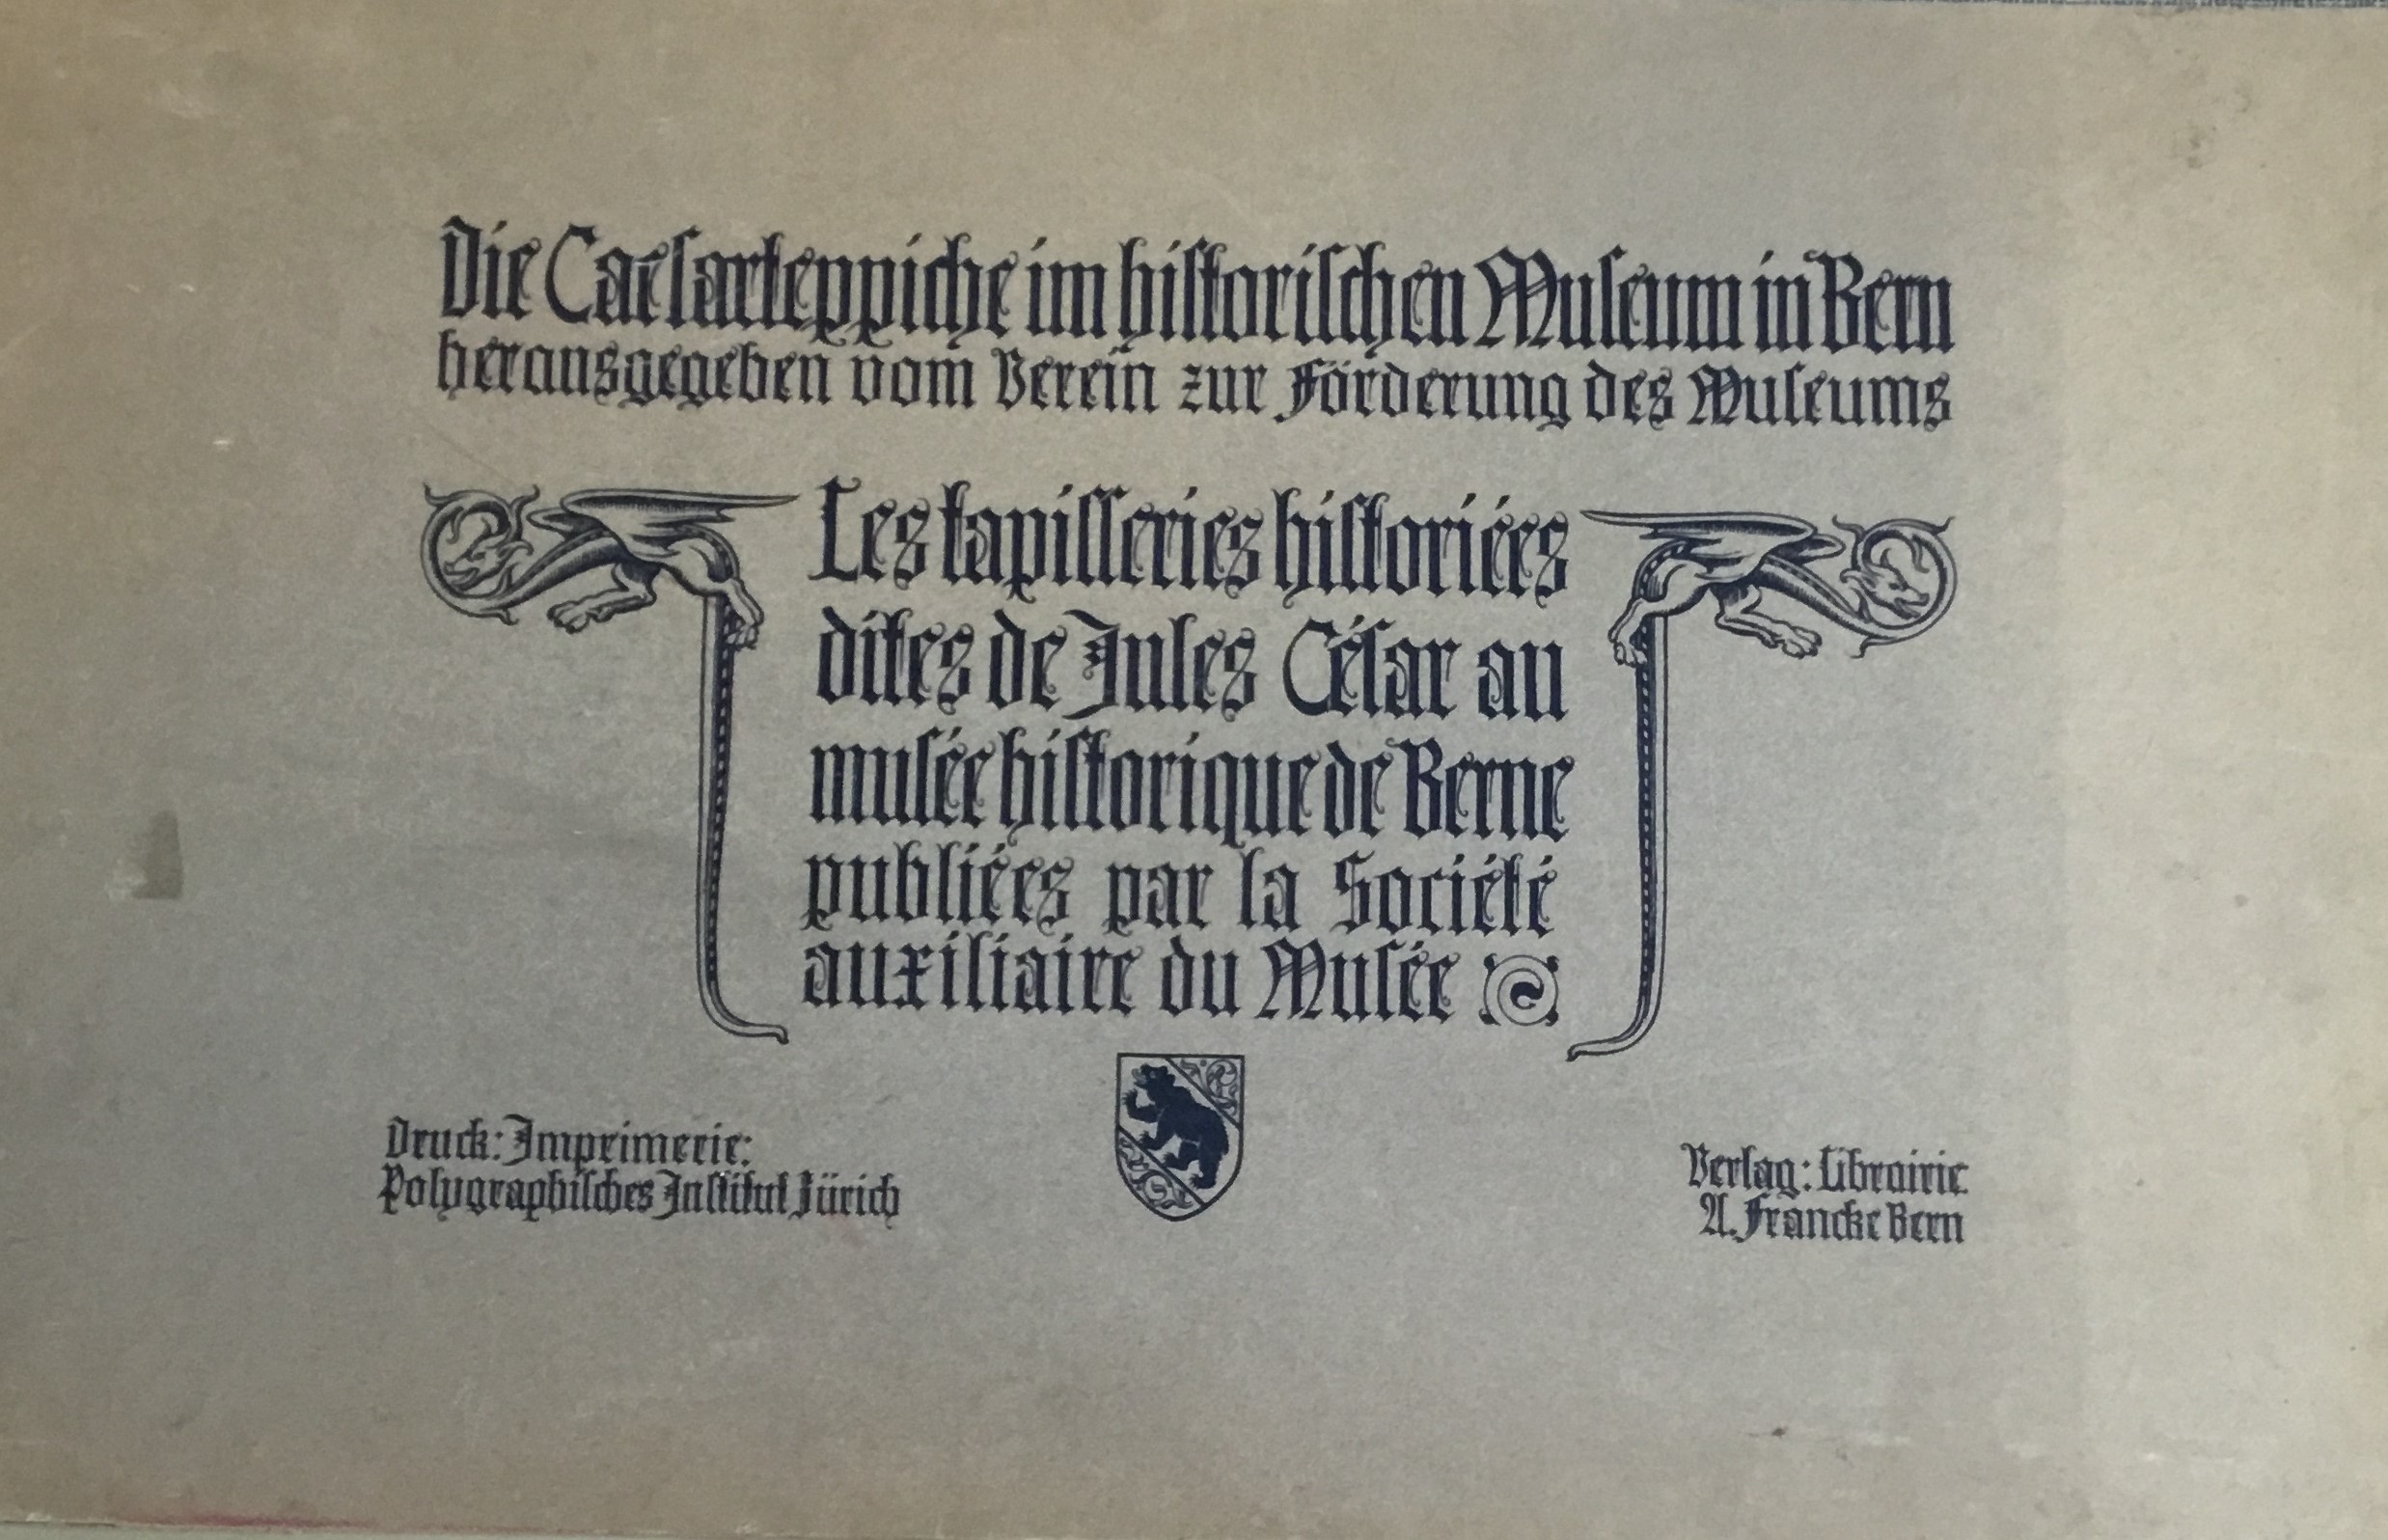 Die Caeſarteppiche im hiſtoriſchen Muſeum in Bern
herausgegeben vom Verein zur Förderung des Muſeums
Les tapiſſeries hiſtoriées
dites de Jules Céſar au
muſée hiſtorique de Berne
publiées par la Société
auxiliaire du Muſée
Druck: Imprimerie:
Polygraphiſches Inſtitut Zürich
Verlag: Librairie
A. Francke Bern